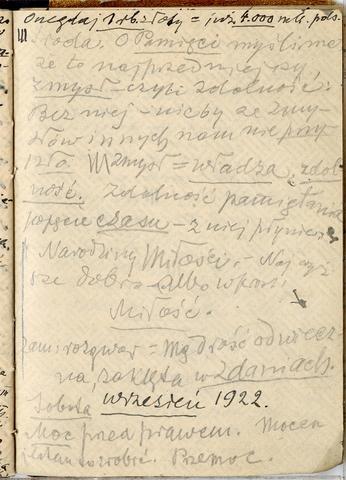 Onegdaj 1 rb. złoty = już 4.000 mk. pols.
Środa. O Pamięci myślimy
że to najprzedniejszy
zmysł – czyli zdolność.
Bez niej – nic by ze zmy-
słów innych nam nie przy-
szło. Zmysł = władza, zdol-
ność. Zdolność pamiętania
pojęcie czasu – z niej płynie.
Narodziny Miłości. – Najwyż-
sze dobra albo wprost
Miłość.
= Mądrość odwiecz-
na, zaklęta w zdaniach.
Sobota wrzesień 1922.
Moc przed prawem. Mocen
jestem to zrobić. Przemoc.